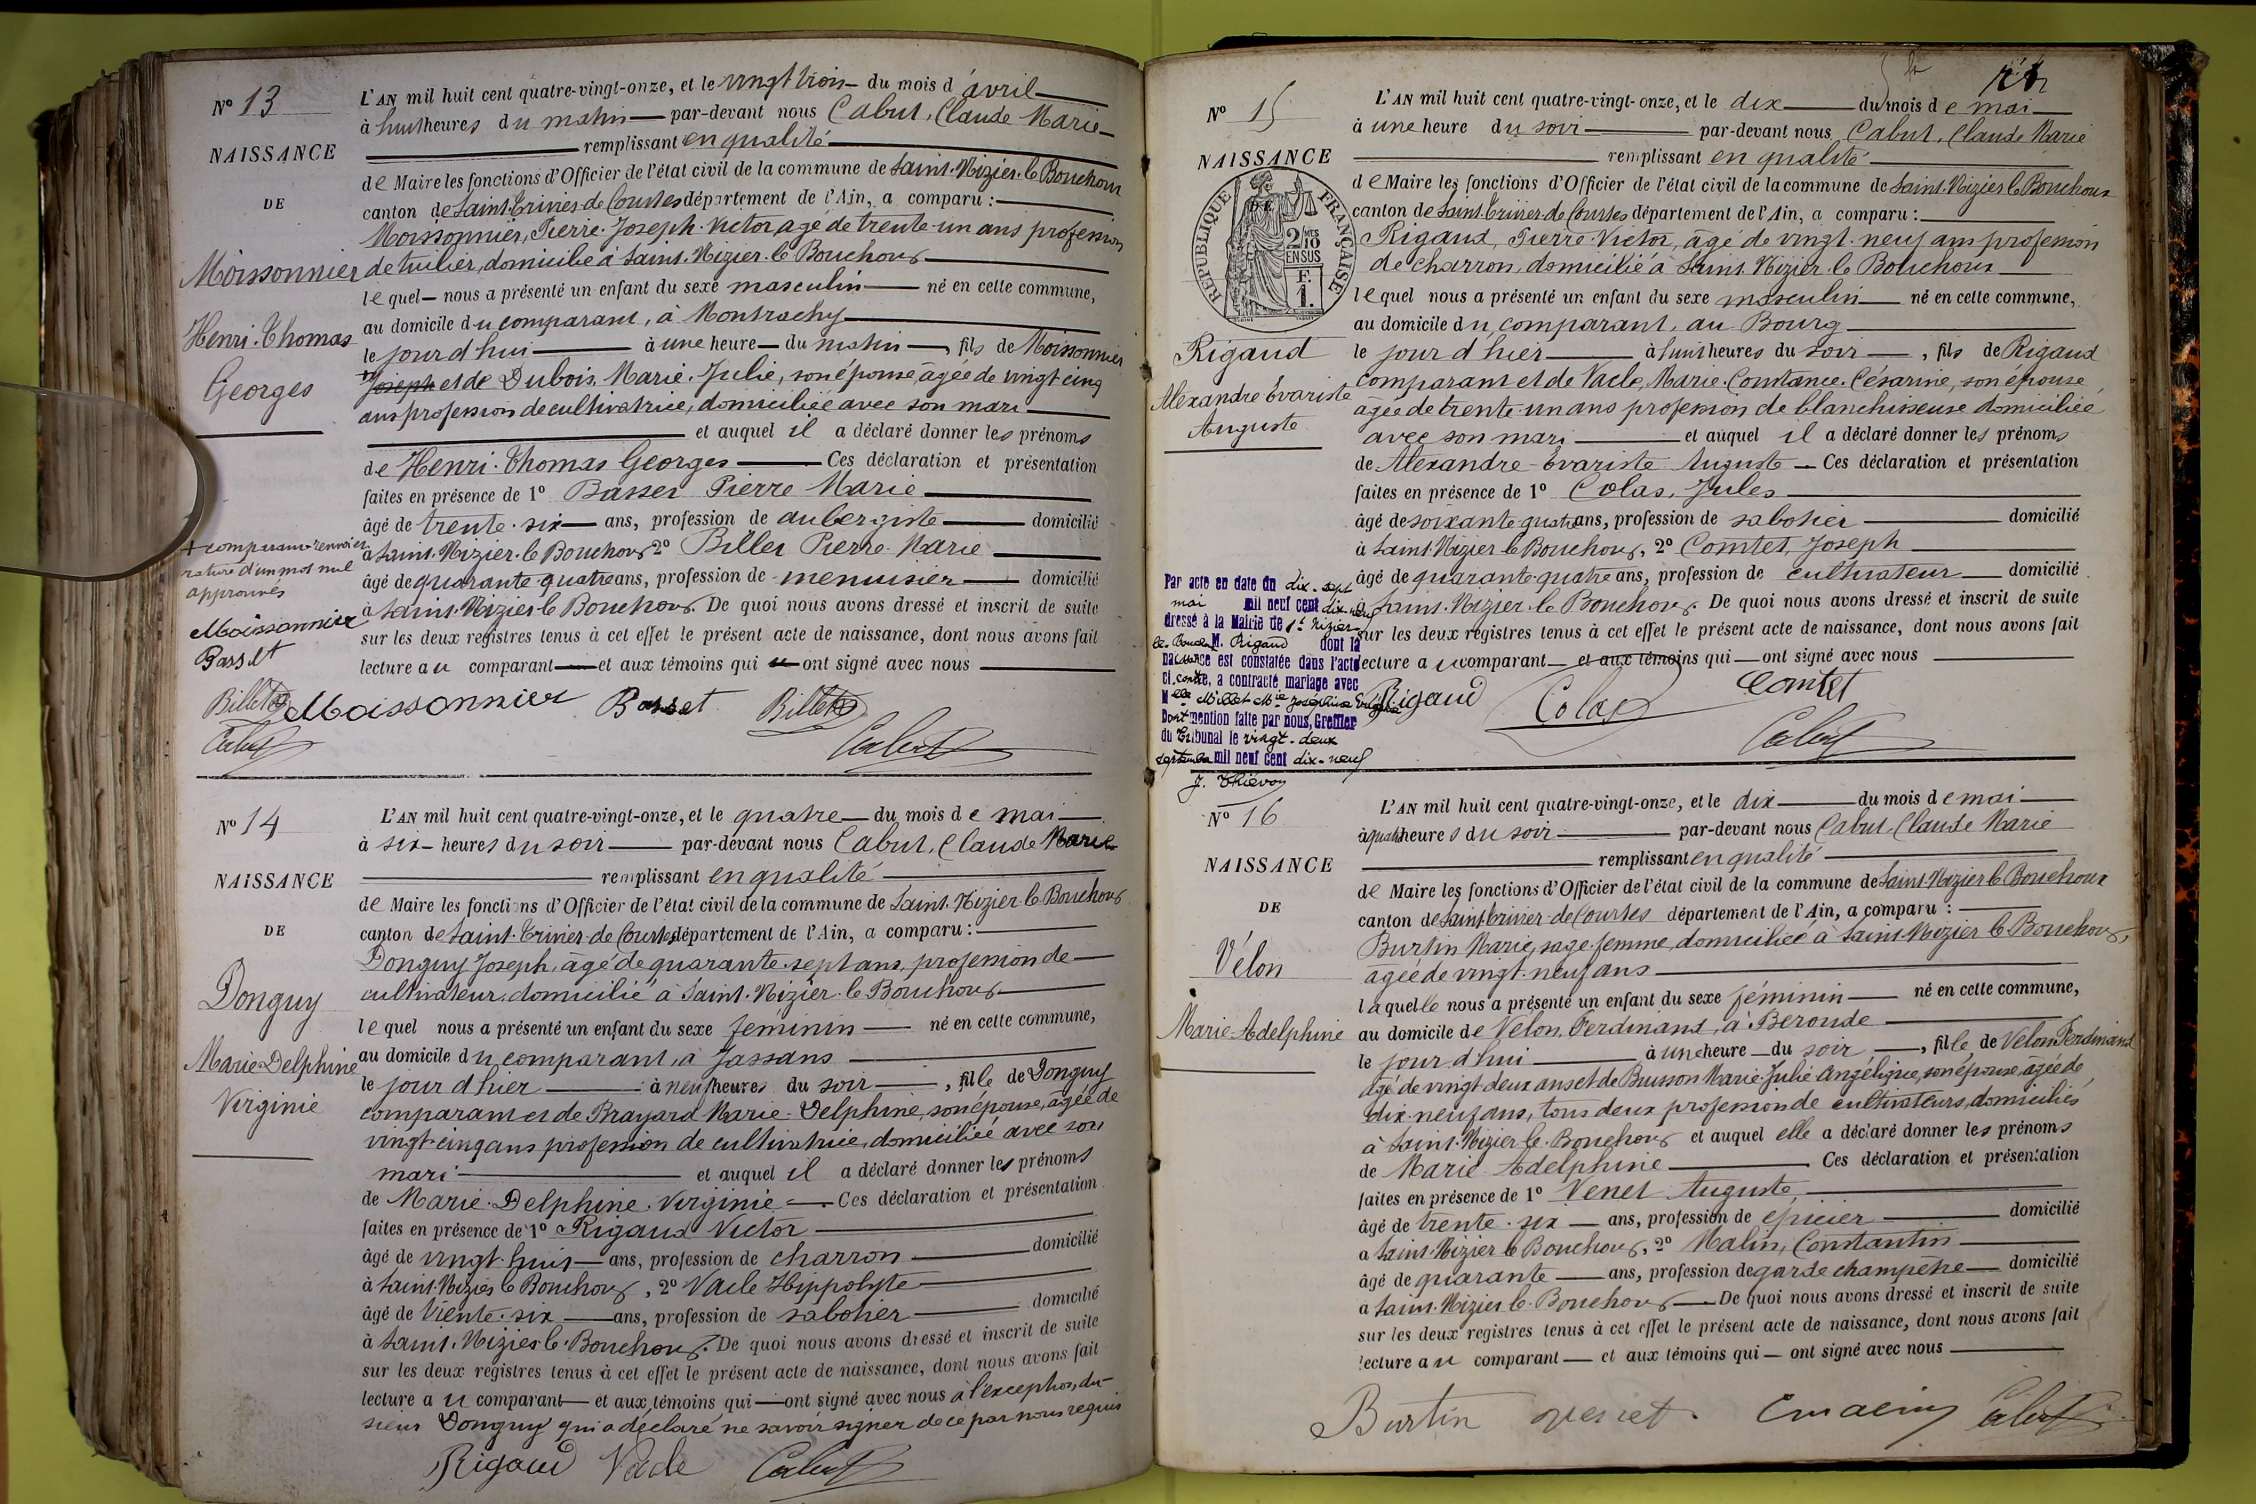 N° 13
NAISSANCE
DE
Moissonnier
Henri Thomas
Georges
+ comparant renvoi et
rature d'un mot nul
approuvés
Moissonnier
Basset
Billet
Cabut
L'AN mil huit cent quatre-vingt-onze, et le vingt trois du mois d'avril
à huit heures du matin par-devant nous Cabut, Claude Marie
remplissant en qualité
de Maire les fonctions d'Officier de l'état civil de la commune de Saint-Nizier-le-Bouchoux
canton de Saint-Trivier-de-Courtes département de l'Ain, a comparu :
Moissonnier, Pierre Joseph Victor agé de trente-un ans profession
de tuilier, domicilié à Saint-Nizier-le-Bouchoux
lequel nous a présenté un enfant du sexe masculin né en cette commune,
au domicile du comparant, à Montrachy
le jour d'hui à une heure du matin, fils de Moissonnier
+ Joseph et de Dubois, Marie Julie, son épouse âgée de vingt cinq
ans profession de cultivatrice, domiciliée avec son mari
et auquel il a déclaré donner les prénoms
de Henri Thomas Georges Ces déclaration et présentation
faites en présence de 1° Basset Pierre Marie
âgé de trente-six ans, profession de aubergiste domicilié
à Saint-Nizier-le-Bouchoux 2° Billet Pierre Marie
âgé de quarante-quatre ans, profession de menuisier domicilié
à Saint-Nizier-le-Bouchoux. De quoi nous avons dressé et inscrit de suite
sur les deux registres tenus à cet effet le présent acte de naissance, dont nous avons fait
lecture au comparant et aux témoins qui ont signé avec nous
Moissonnier Basset Billet
Cabut
N° 14
NAISSANCE
DE
Donguy
Marie-Delphine
Virginie
L'AN mil huit cent quatre-vingt-onze, et le quatre du mois de mai
à six heures du soir par-devant nous Cabut, Claude Marie
remplissant en qualité
de Maire les fonctions d'Officier de l'état civil de la commune de Saint-Nizier-le-Bouchoux
canton de Saint-Trivier-de-Courtes département de l'Ain, a comparu :
Donguy Joseph, âgé de quarante-sept ans, profession de
cultivateur, domicilié à Saint-Nizier-le-Bouchoux
lequel nous a présenté un enfant du sexe féminin né en cette commune,
au domicile du comparant, à Jassans
le jour d'hier à neuf heures du soir, fille de Donguy
comparant et de Brayard Marie-Delphine, son épouse, âgée de
vingt-cinq ans profession de cultivatrice, domiciliée avec son
mari et auquel il a déclaré donner les prénoms
de Marie-Delphine Virginie. Ces déclaration et présentation
faites en présence de 1° Rigaud Victor
âgé de vingt-huit ans, profession de charron domicilié
à Saint-Nizier le Bouchoux, 2° Vacle Hippolyte
âgé de trente-six ans, profession de sabotier domicilié
à Saint-Nizier-le-Bouchoux. De quoi nous avons dressé et inscrit de suite
sur les deux registres tenus à cet effet le présent acte de naissance, dont nous avons fait
lecture au comparant et aux témoins qui ont signé avec nous à l'exception du
sieur Donguy qui a déclaré ne savoir signer de ce par nous requis
Rigaud Vacle Cabut
N° 15
NAISSANCE
RÉPUBLIQUE FRANÇAISE
2/10MES
EN SUS
F.
1.
Rigaud
Alexandre Évariste
Auguste
Par acte en date du dix-sept
mai mil neuf cent dix-neuf
dressé à la Mairie de St Nizier-
le-Bouchoux M. Rigaud dont la
naissance est constatée dans l'acte
ci contre, a contracté mariage avec
Melle Millet Mie Joséphine
Dont mention faite par nous, Greffier
du Tribunal le vingt-deux
septembre mil neuf cent dix-neuf
J. Thiévon
L'AN mil huit cent quatre-vingt-onze, et le dix du mois de mai
à une heure du soir par-devant nous Cabut, Claude Marie
remplissant en qualité
de Maire les fonctions d'Officier de l'état civil de la commune de Saint-Nizier le Bouchoux
canton de Saint-Trivier-de-Courtes département de l'Ain, a comparu :
Rigaud, Pierre Victor, âgé de vingt-neuf ans profession
de charron, domicilié à Saint-Nizier-le-Bouchoux
lequel nous a présenté un enfant du sexe masculin né en cette commune,
au domicile du comparant, au Bourg
le jour d'hier à huit heures du soir, fils de Rigaud
comparant et de Vacle, Marie Constance Césarine, son épouse
âgée de trente-un ans profession de blanchisseuse domiciliée
avec son mari et auquel il a déclaré donner les prénoms
de Alexandre-Évariste Auguste Ces déclaration et présentation
faites en présence de 1° Colas, Jules
âgé de soixante quatre ans, profession de sabotier domicilié
à Saint-Nizier-le-Bouchoux, 2° Comtet, Joseph
âgé de quarante-quatre ans, profession de cultivateur domicilié
à Saint-Nizier-le-Bouchoux. De quoi nous avons dressé et inscrit de suite
sur les deux registres tenus à cet effet le présent acte de naissance, dont nous avons fait
lecture au comparant et aux témoins qui ont signé avec nous
Rigaud Colas Comtet
Cabut
N° 16
NAISSANCE
DE
Vélon
Marie Adelphine
L'AN mil huit cent quatre-vingt-onze, et le dix du mois de mai
à quatre heures du soir par-devant nous Cabut, Claude Marie
remplissant en qualité
de Maire les fonctions d'Officier de l'état civil de la commune de Saint-Nizier le Bouchoux
canton de Saint-Trivier-de-Courtes département de l'Ain, a comparu :
Burtin Marie, sage-femme, domiciliée à Saint-Nizier-le-Bouchoux,
âgée de vingt-neuf ans
laquelle nous a présenté un enfant du sexe féminin né en cette commune,
au domicile de Velon, Ferdinand, à Beroude
le jour d'hui à une heure du soir, fille de Velon Ferdinand
âgé de vingt deux ans et de Buisson Marie Julie Angélique, son épouse, âgée de
dix-neuf ans, tous deux profession de cultivateurs, domiciliés
à Saint-Nizier-le-Bouchoux et auquel elle a déclaré donner les prénoms
de Marie Adelphine Ces déclaration et présentation
faites en présence de 1° Venet Auguste,
âgé de trente-six ans, profession de épicier domicilié
à Saint-Nizier le Bouchoux, 2° Malin, Constantin
âgé de quarante ans, profession de garde champêtre domicilié
à Saint-Nizier-le-Bouchoux De quoi nous avons dressé et inscrit de suite
sur les deux registres tenus à cet effet le présent acte de naissance, dont nous avons fait
lecture au comparant et aux témoins qui ont signé avec nous
Burtin Venet Cabut